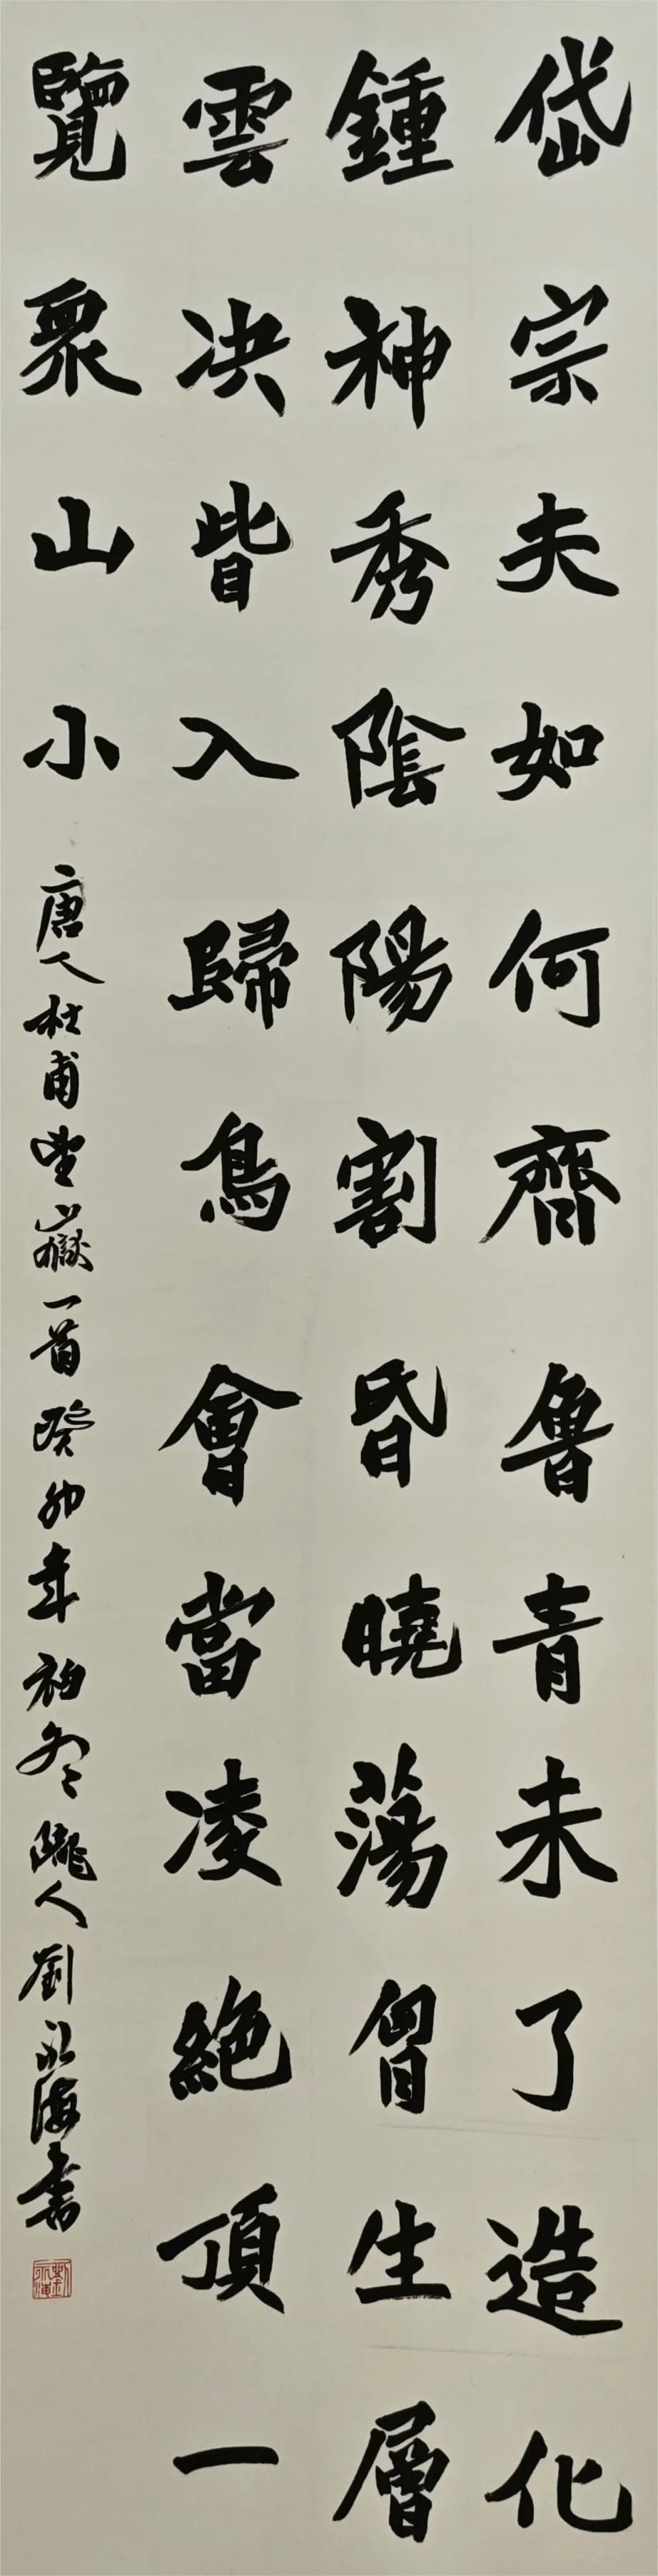 岱宗夫如何齊魯青未了造化
鍾神秀陰陽割昏曉蕩胷生層
雲决眥入歸鳥會當凌絕頂一
覽眾山小
唐人杜甫望嶽一首癸卯年初冬隴人劉永海書
劉永海